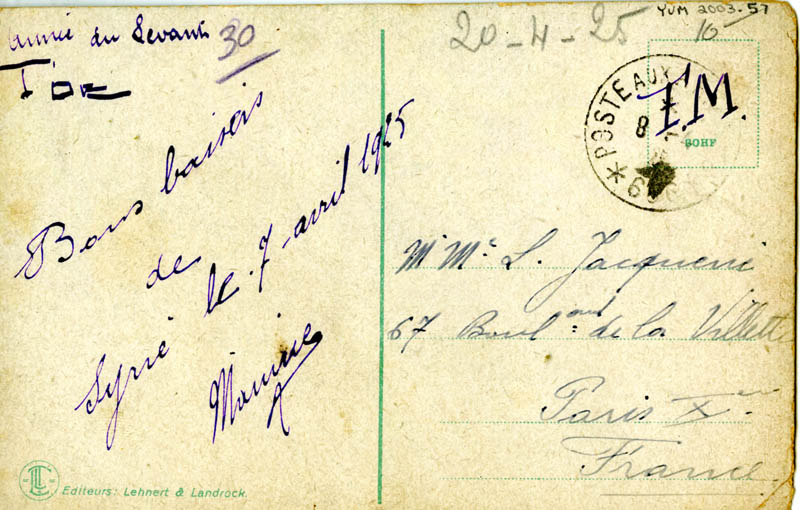 Armée du Levant
TOE
30
Bons baisers
de
Syrie le 7 avril 1925
Maurice
LL
Editeurs: Lehnert & Landrock.
20-4-25
YUM 2003-57
10
POSTE AUX A
8
600
F.M.
BOHF
Mr Me L. Jacquemi
67 Boulard de la Villette
Paris Xe
France